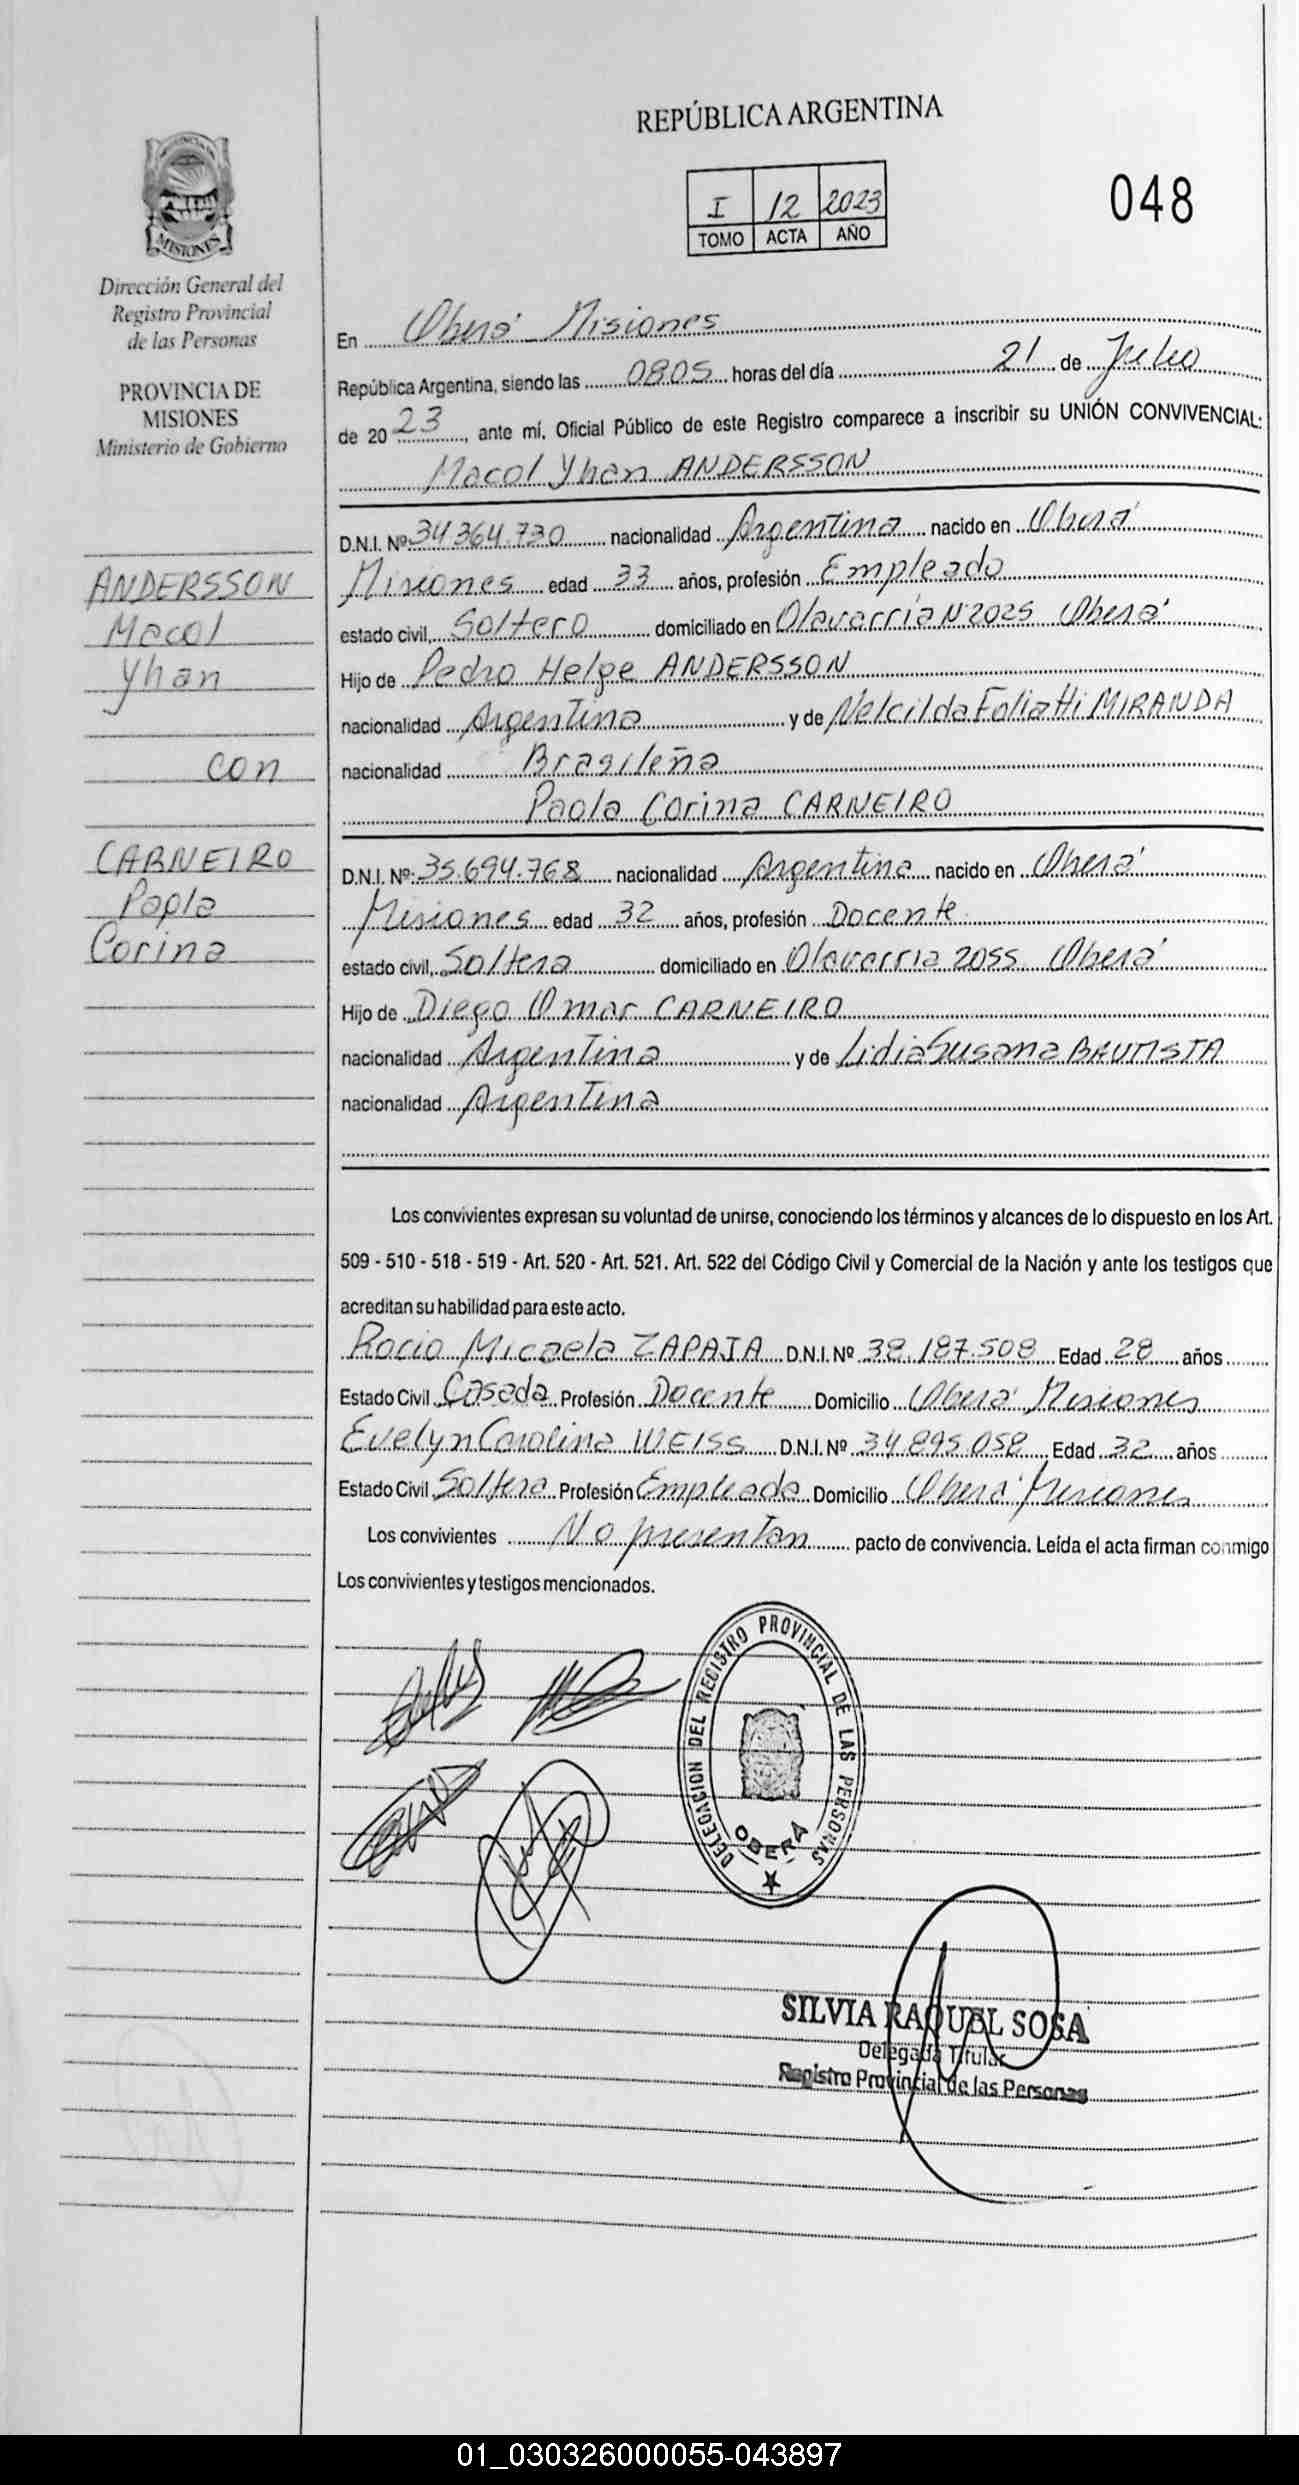 REPÚBLICA ARGENTINA
I 12 2023
TOMO ACTA AÑO
048
MISIONES
Dirección General del
Registro Provincial
de las Personas
PROVINCIA DE
MISIONES
Ministerio de Gobierno
ANDERSSON
Macol
Yhan
con
CARNEIRO
Paola
Corina
En Oberá Misiones
República Argentina, siendo las 0805 horas del día 21 de Julio
de 2023, ante mí, Oficial Público de este Registro comparece a inscribir su UNIÓN CONVIVENCIAL:
Macol Yhan ANDERSSON
D.N.I. Nº 34.364.730 nacionalidad Argentina nacido en Oberá
Misiones edad 33 años, profesión Empleado
estado civil, Soltero domiciliado en Olavarría Nº2025 Oberá
Hijo de Pedro Helge ANDERSSON
nacionalidad Argentina y de Nelcilda Foliatti MIRANDA
nacionalidad Brasileña
Paola Corina CARNEIRO
D.N.I. Nº: 35.694.768 nacionalidad Argentina nacido en Oberá
Misiones edad 32 años, profesión Docente
estado civil, Soltera domiciliado en Olavarria 2055 Oberá
Hijo de Diego Omar CARNEIRO
nacionalidad Argentina y de Lidia Susana BAUTISTA
nacionalidad Argentina
Los convivientes expresan su voluntad de unirse, conociendo los términos y alcances de lo dispuesto en los Art.
509 - 510 - 518 - 519 - Art. 520 - Art. 521. Art. 522 del Código Civil y Comercial de la Nación y ante los testigos que
acreditan su habilidad para este acto.
Rocio Micaela ZAPAJA D.N.I. Nº 38.187.508 Edad 28 años
Estado Civil Casada Profesión Docente Domicilio Oberá Misiones
Evelyn Carolina WEISS D.N.I. Nº 34.895.058 Edad 32 años
Estado Civil Soltera Profesión Empleada Domicilio Oberá Misiones
Los convivientes No presentan pacto de convivencia. Leída el acta firman conmigo
Los convivientes y testigos mencionados.
DELEGACION DEL REGISTRO PROVINCIAL DE LAS PERSONAS
OBERÁ
SILVIA RAQUEL SOSA
Delegada Titular
Registro Provincial de las Personas
01_030326000055-043897